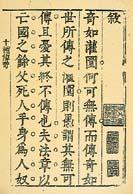 敘
奇如灌園何可無傳而
世所傳之灌園則愚謂其無可
傳且憂其終不傳也夫法章以
亡國之餘父死人手身為人奴